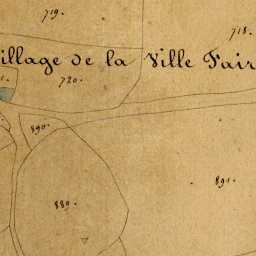 719.
718.
illage de la Ville Fair
720.
890.
891.
889.